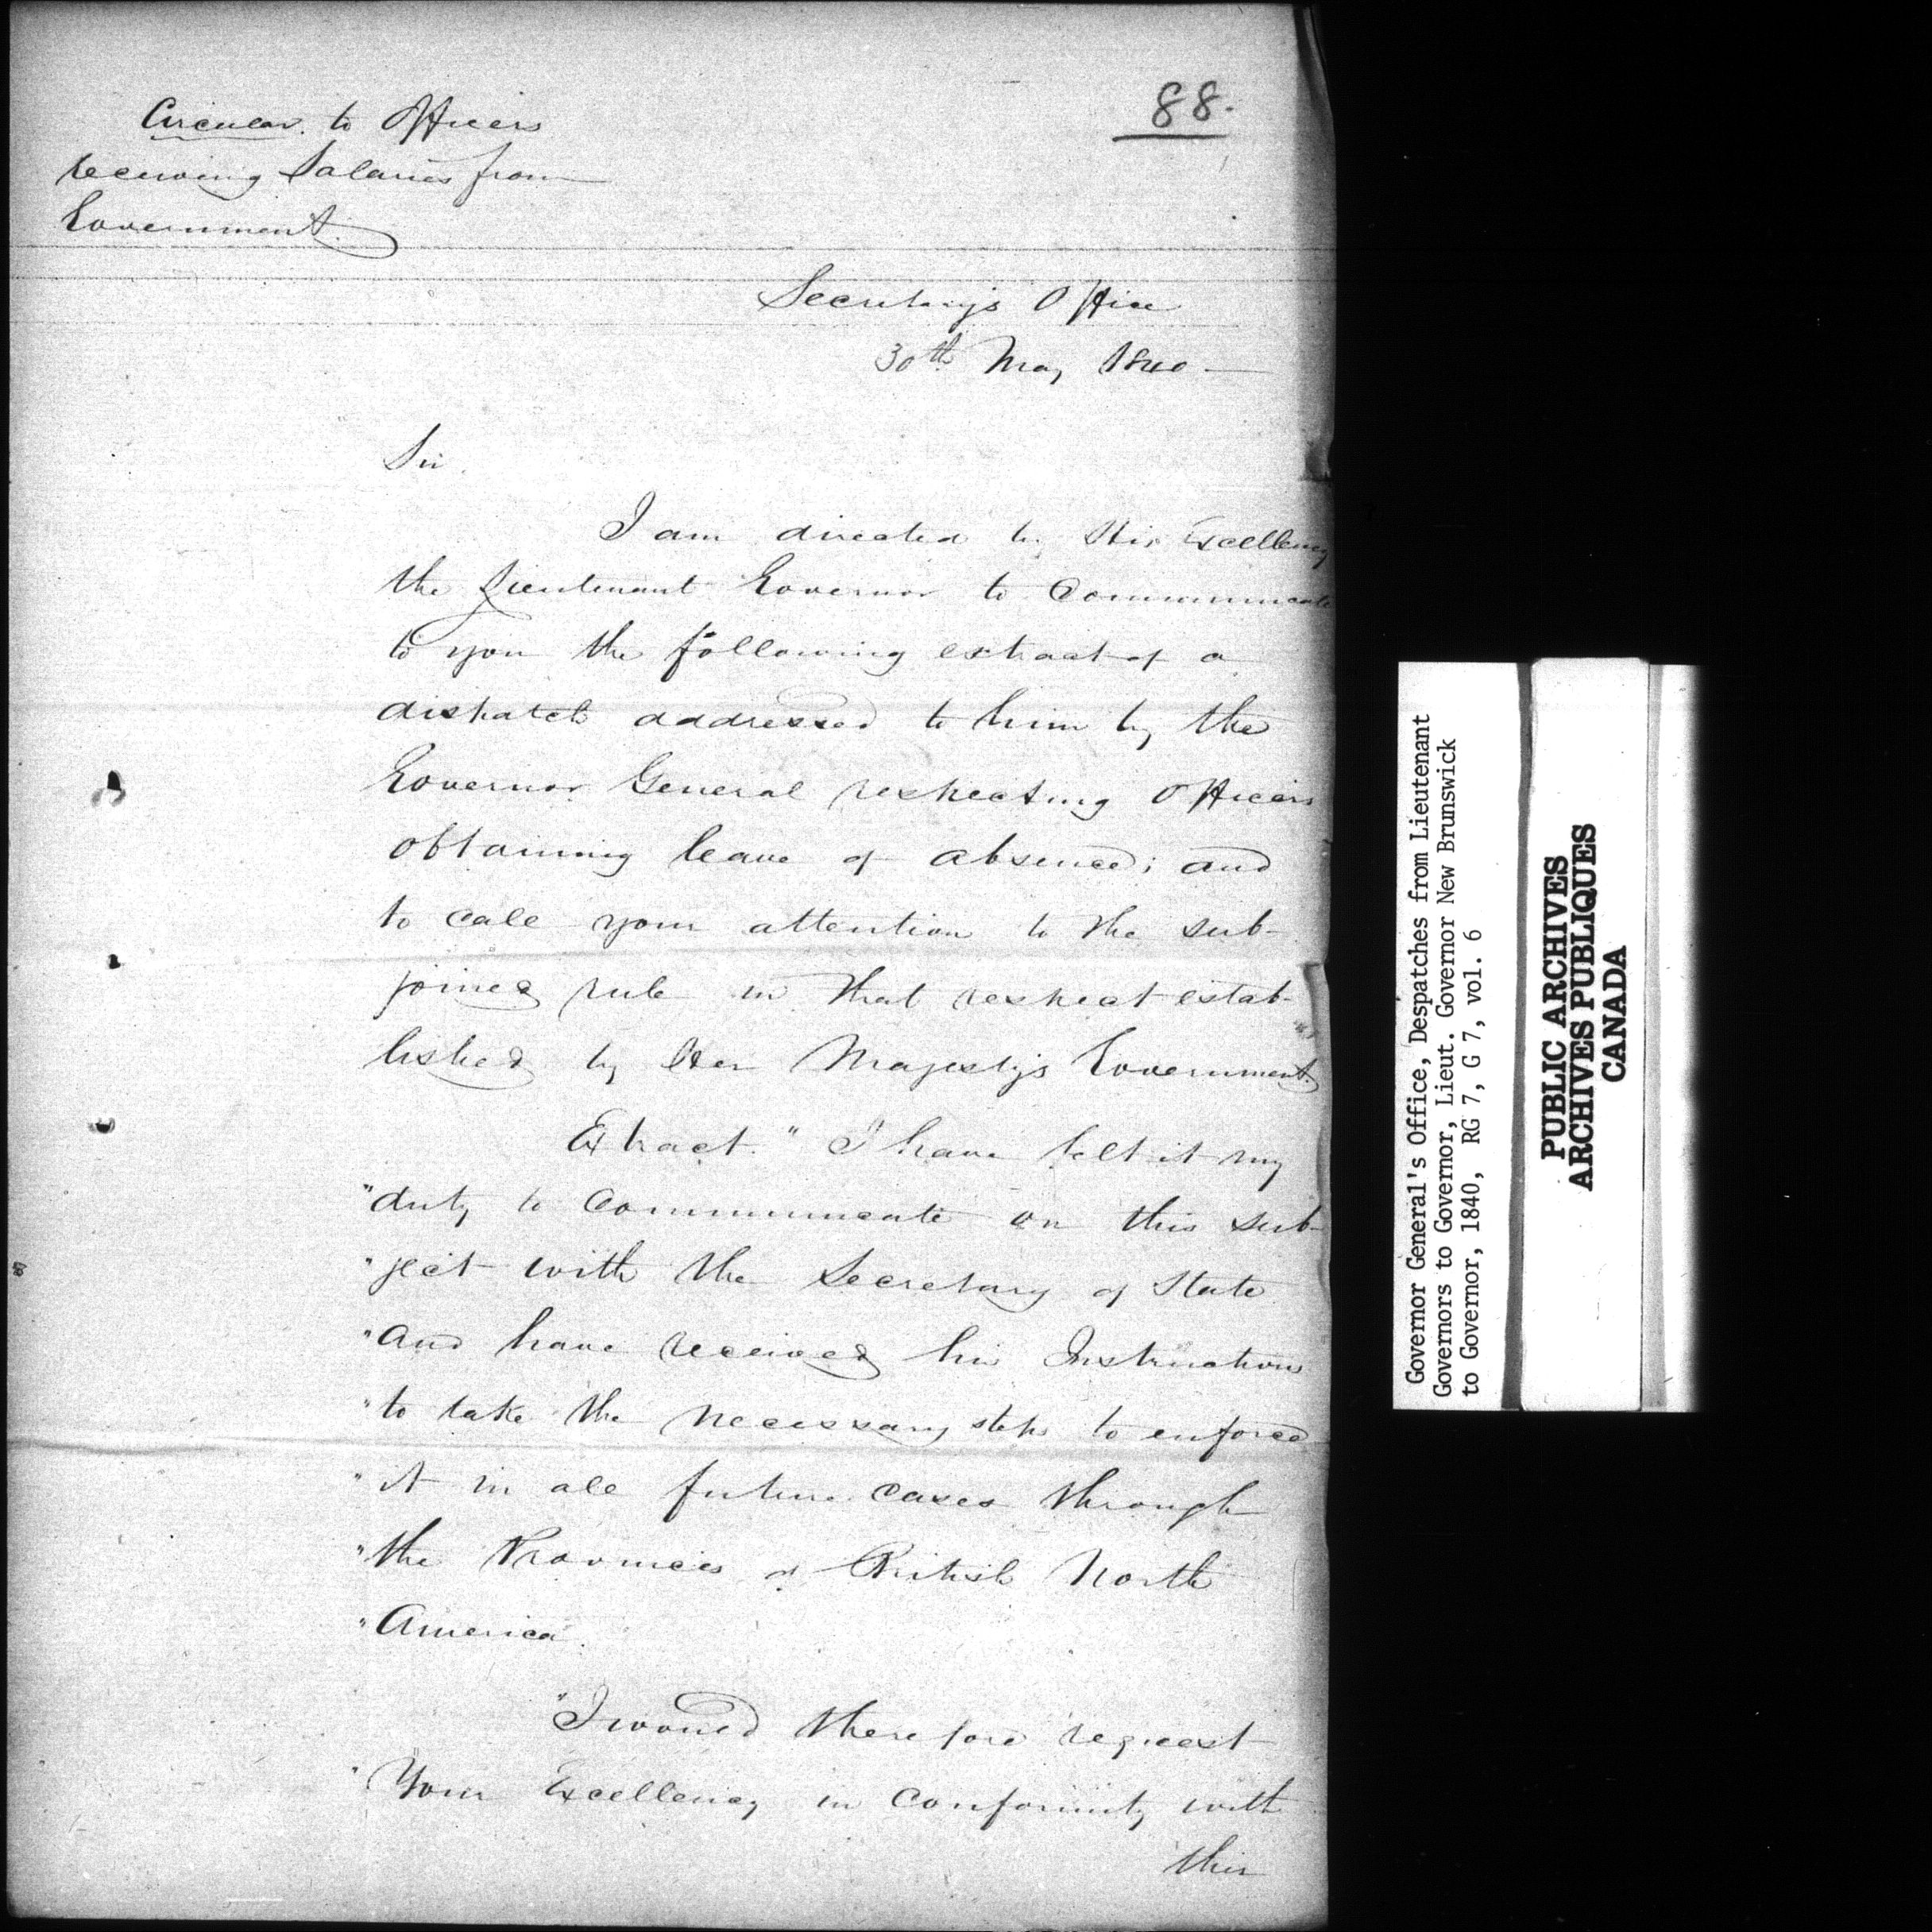 88.
Circular to Officers
receiving Salaries from
Government.
Secretary's Office
30th May 1840 —
Sir.
I am directed by His Excellency
the Lieutenant Governor to Communicate
to you the following extract of a
dispatch addressed to him by the
Governor General respecting Officers
obtaining leave of absence; and
to call your attention to the sub-
joined rule in that respect estab-
lished by Her Majesty's Government.
Extract. "I have felt it my
"duty to Communicate on this sub-
"ject with the Secretary of State
"and have received his Instructions
"to take the necessary steps to enforce
"it in all future cases through
"the Provinces of British North
"America.
"I would therefore request
"Your Excellency in conformity with
this
Governor General's Office, Despatches from Lieutenant
Governors to Governor, Lieut. Governor New Brunswick
to Governor, 1840, RG 7, G 7, vol. 6
PUBLIC ARCHIVES
ARCHIVES PUBLIQUES
CANADA